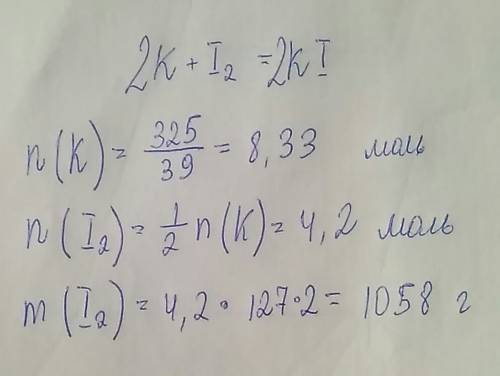 2K + I₂ = 2KI
n(K) = 325/39 = 8,33 моль
n(I₂) = 1/2 n(K) = 4,2 моль
m(I₂) = 4,2 · 127 · 2 = 1058 г